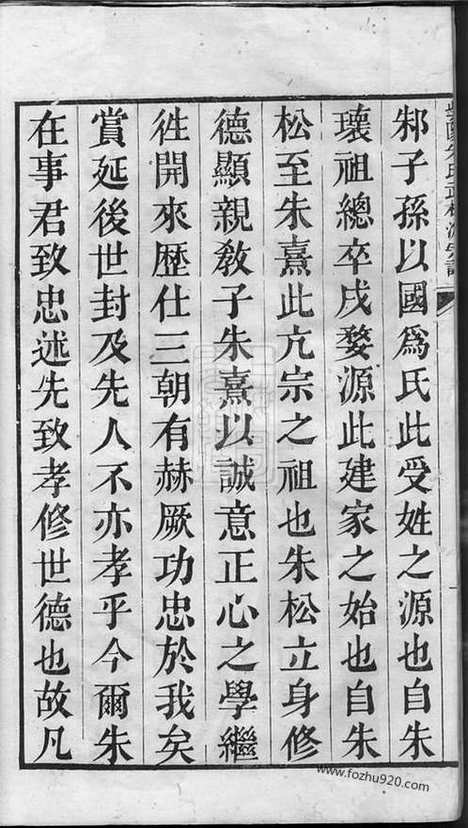 邾子孫以國爲氏此受姓之源也自朱
瓌祖總卒戍婺源此建家之始也自朱
松至朱熹此亢宗之祖也朱松立身修
德顯親教子朱熹以誠意正心之學繼
徃開來歷仕三朝有赫厥功忠於我矣
賞延後世封及先人不亦孝乎今爾朱
在事君致忠述先致孝修世德也故凡
www.fozhu920.com